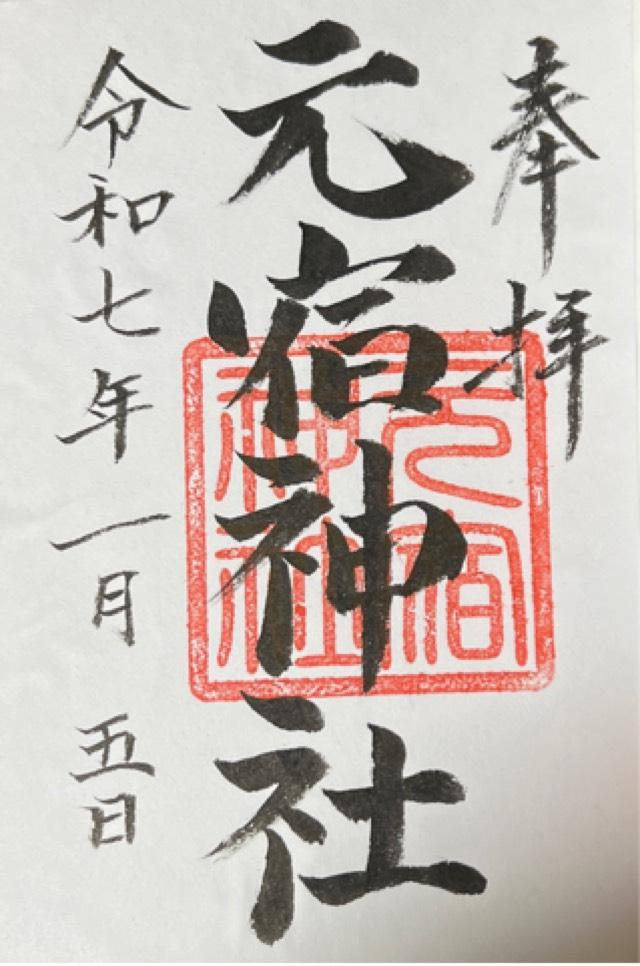 奉拝
元宿神社
元宿神社
令和七年一月五日